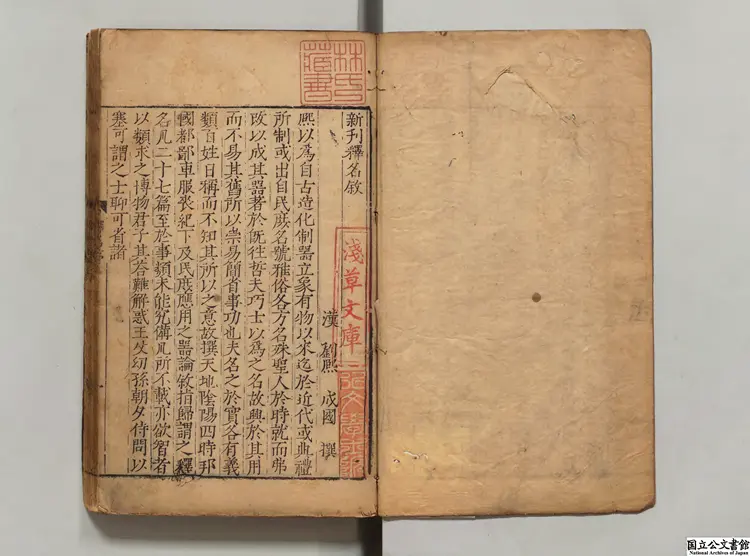 林氏
藏書
新刊釋名敘
漢 劉熙 成國 撰
熙以爲自古造化制器立象有物以來迄於近代或典禮
所制或出自民庶名號雅俗各方名殊聖人於時就而弗
改以成其器著於旣往哲夫巧士以爲之名故興於其用
而不易其舊所以崇易簡省事功也夫名之於實各有義
類百姓日稱而不知其所以之意故撰天地陰陽四時邦
國都鄙車服喪紀下及民庶應用之器論敘指歸謂之釋
名凡二十七篇至於事類未能究備凡所不載亦欲智者
以類求之博物君子其荅難解惑王父幼孫朝夕侍問以
塞可謂之士聊可者諸
淺草文庫
弘文學士院
国立公文書館
National Archives of Japan